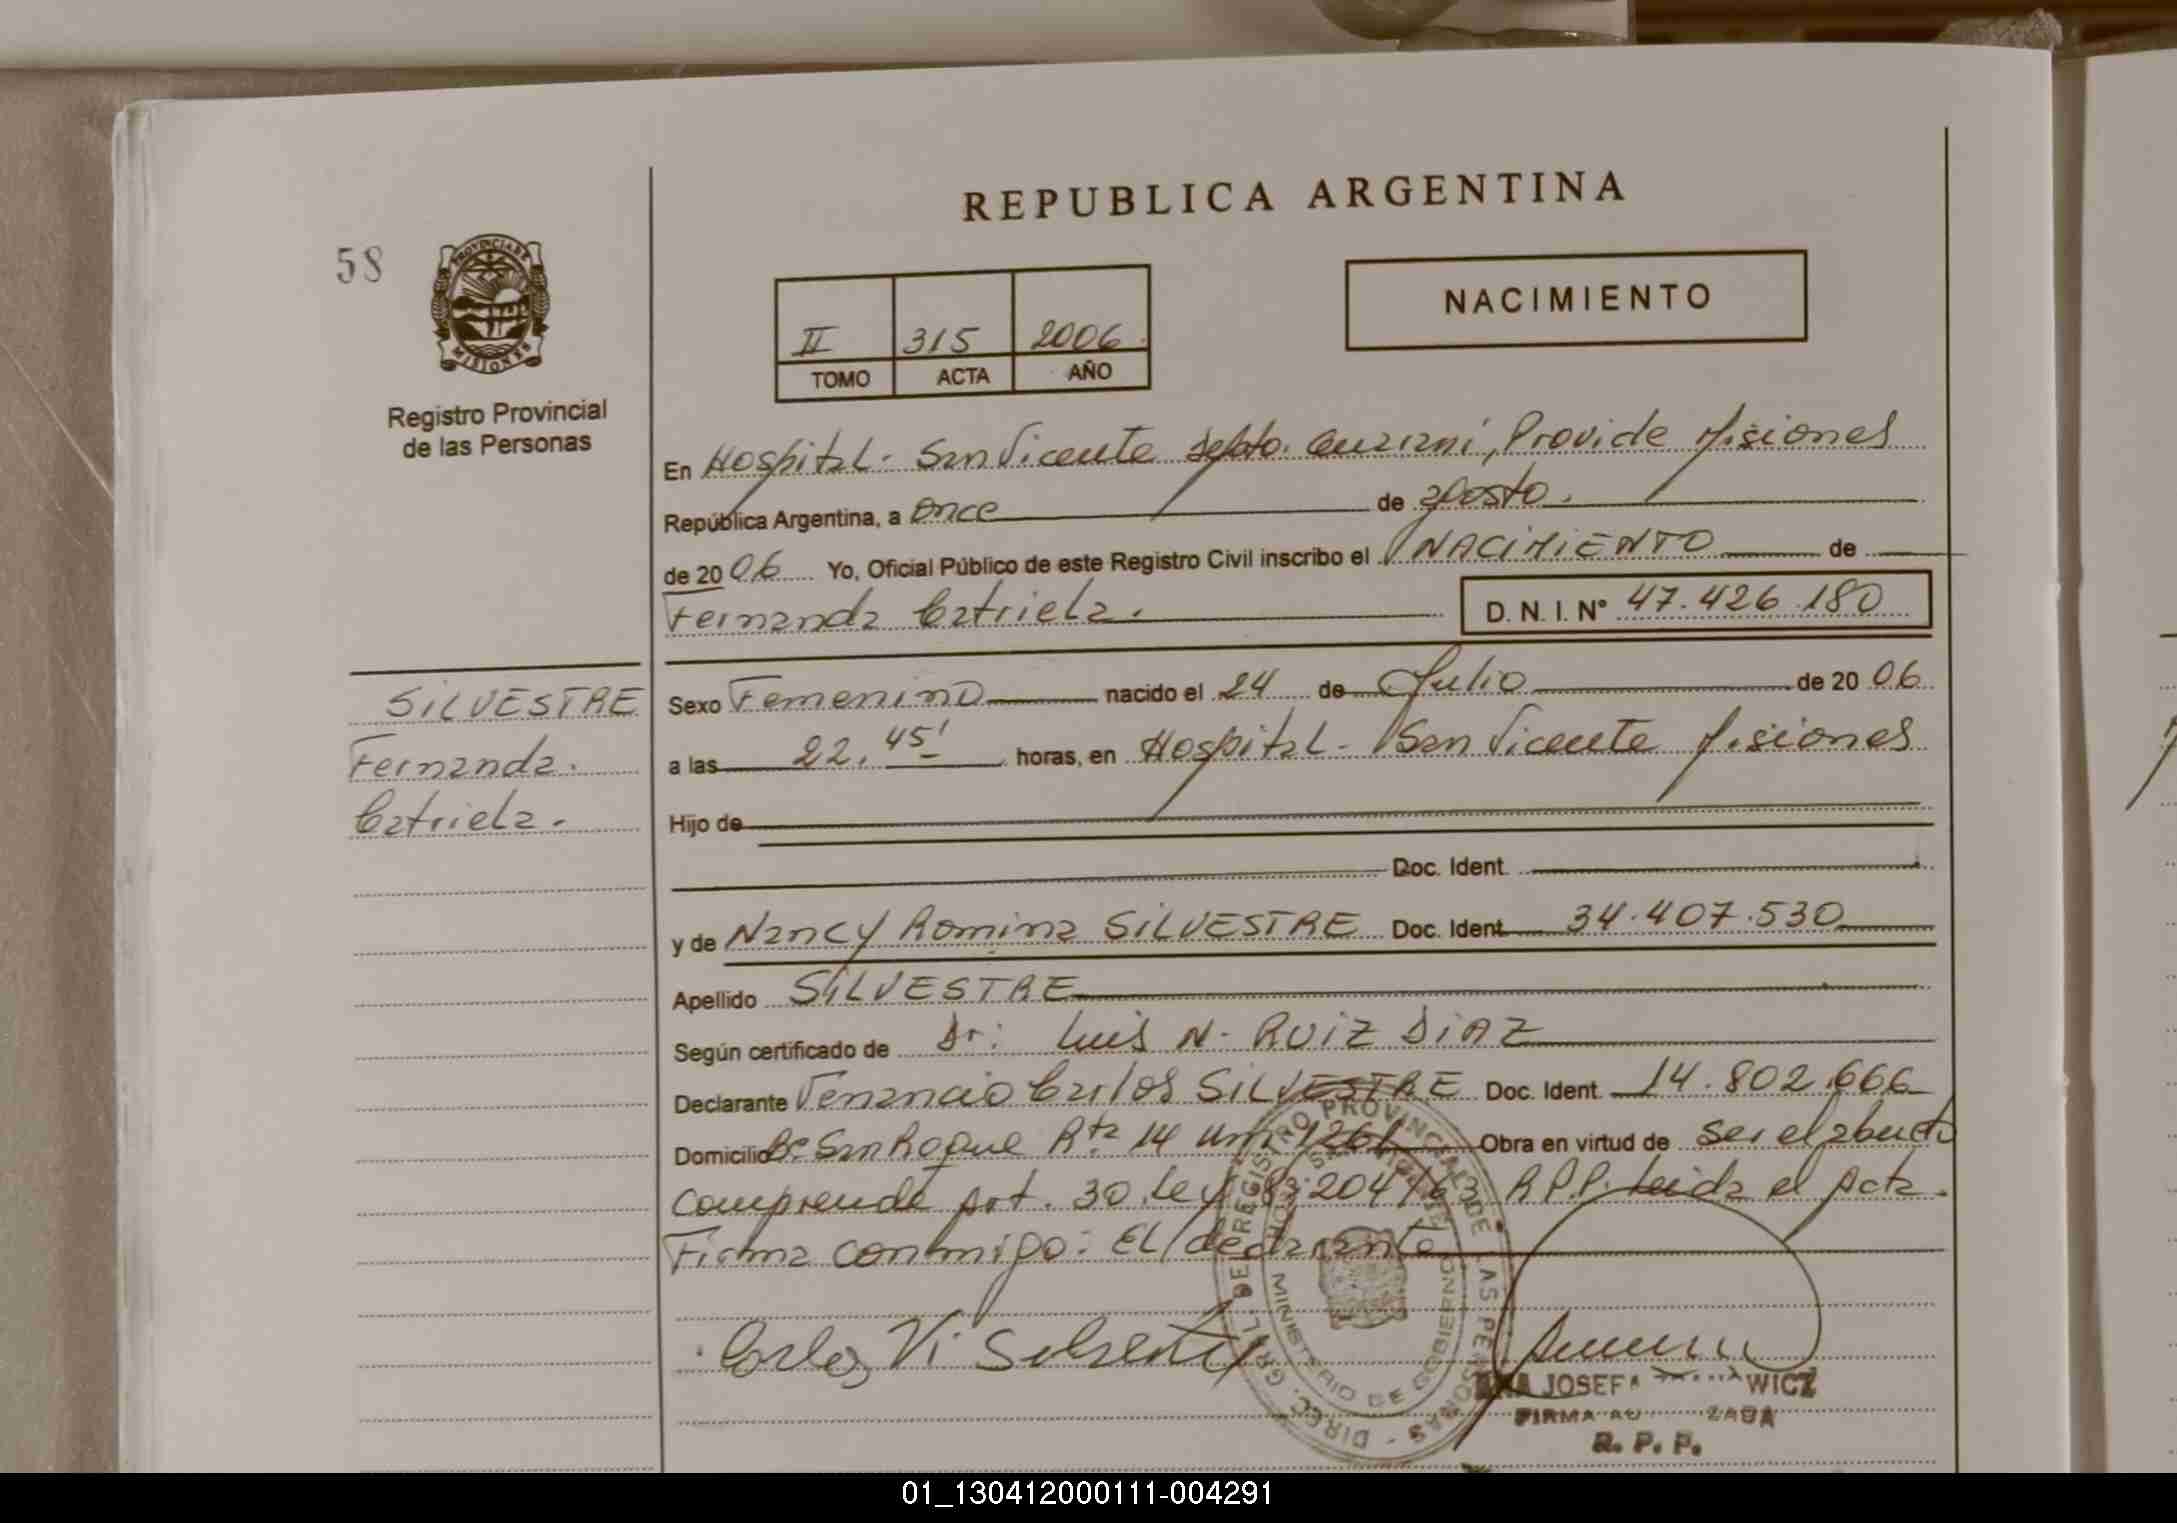 REPUBLICA ARGENTINA
58
PROVINCIA DE
MISIONES
Registro Provincial
de las Personas
II 315 2006
TOMO ACTA AÑO
NACIMIENTO
En Hospital - San Vicente Depto. Guaraní, Prov. de Misiones
República Argentina, a once de agosto.
de 2006 Yo, Oficial Público de este Registro Civil inscribo el NACIMIENTO de
Fernanda Catriela. D. N. I. Nº 47.426.180
SILVESTRE
Fernanda.
Catriela.
Sexo Femenino nacido el 24 de Julio de 2006
a las 22.45' horas, en Hospital - San Vicente Misiones
Hijo de
Doc. Ident.
y de Nancy Romina SILVESTRE Doc. Ident. 34.407.530
Apellido SILVESTRE
Según certificado de Dr: Luis N. RUIZ DIAZ
Declarante Venancio Carlos SILVESTRE Doc. Ident. 14.802.666
Domicilio Bº San Roque Rta 14 Km 1261 Obra en virtud de ser el abuelo
comprende Art. 30 Ley 8.204/63 R.P.P. Leida el Acta.
Firma conmigo: El declarante
DIREC. GRAL. DE REGISTRO PROVINCIAL DE LAS PERSONAS
MINISTERIO DE GOBIERNO
Carlos V. Silvestre
ANA JOSEFA WICZ
FIRMA
R. P. P.
01_130412000111-004291